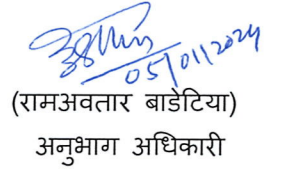 05/01/2024
(रामअवतार बाडेटिया)
अनुभाग अधिकारी